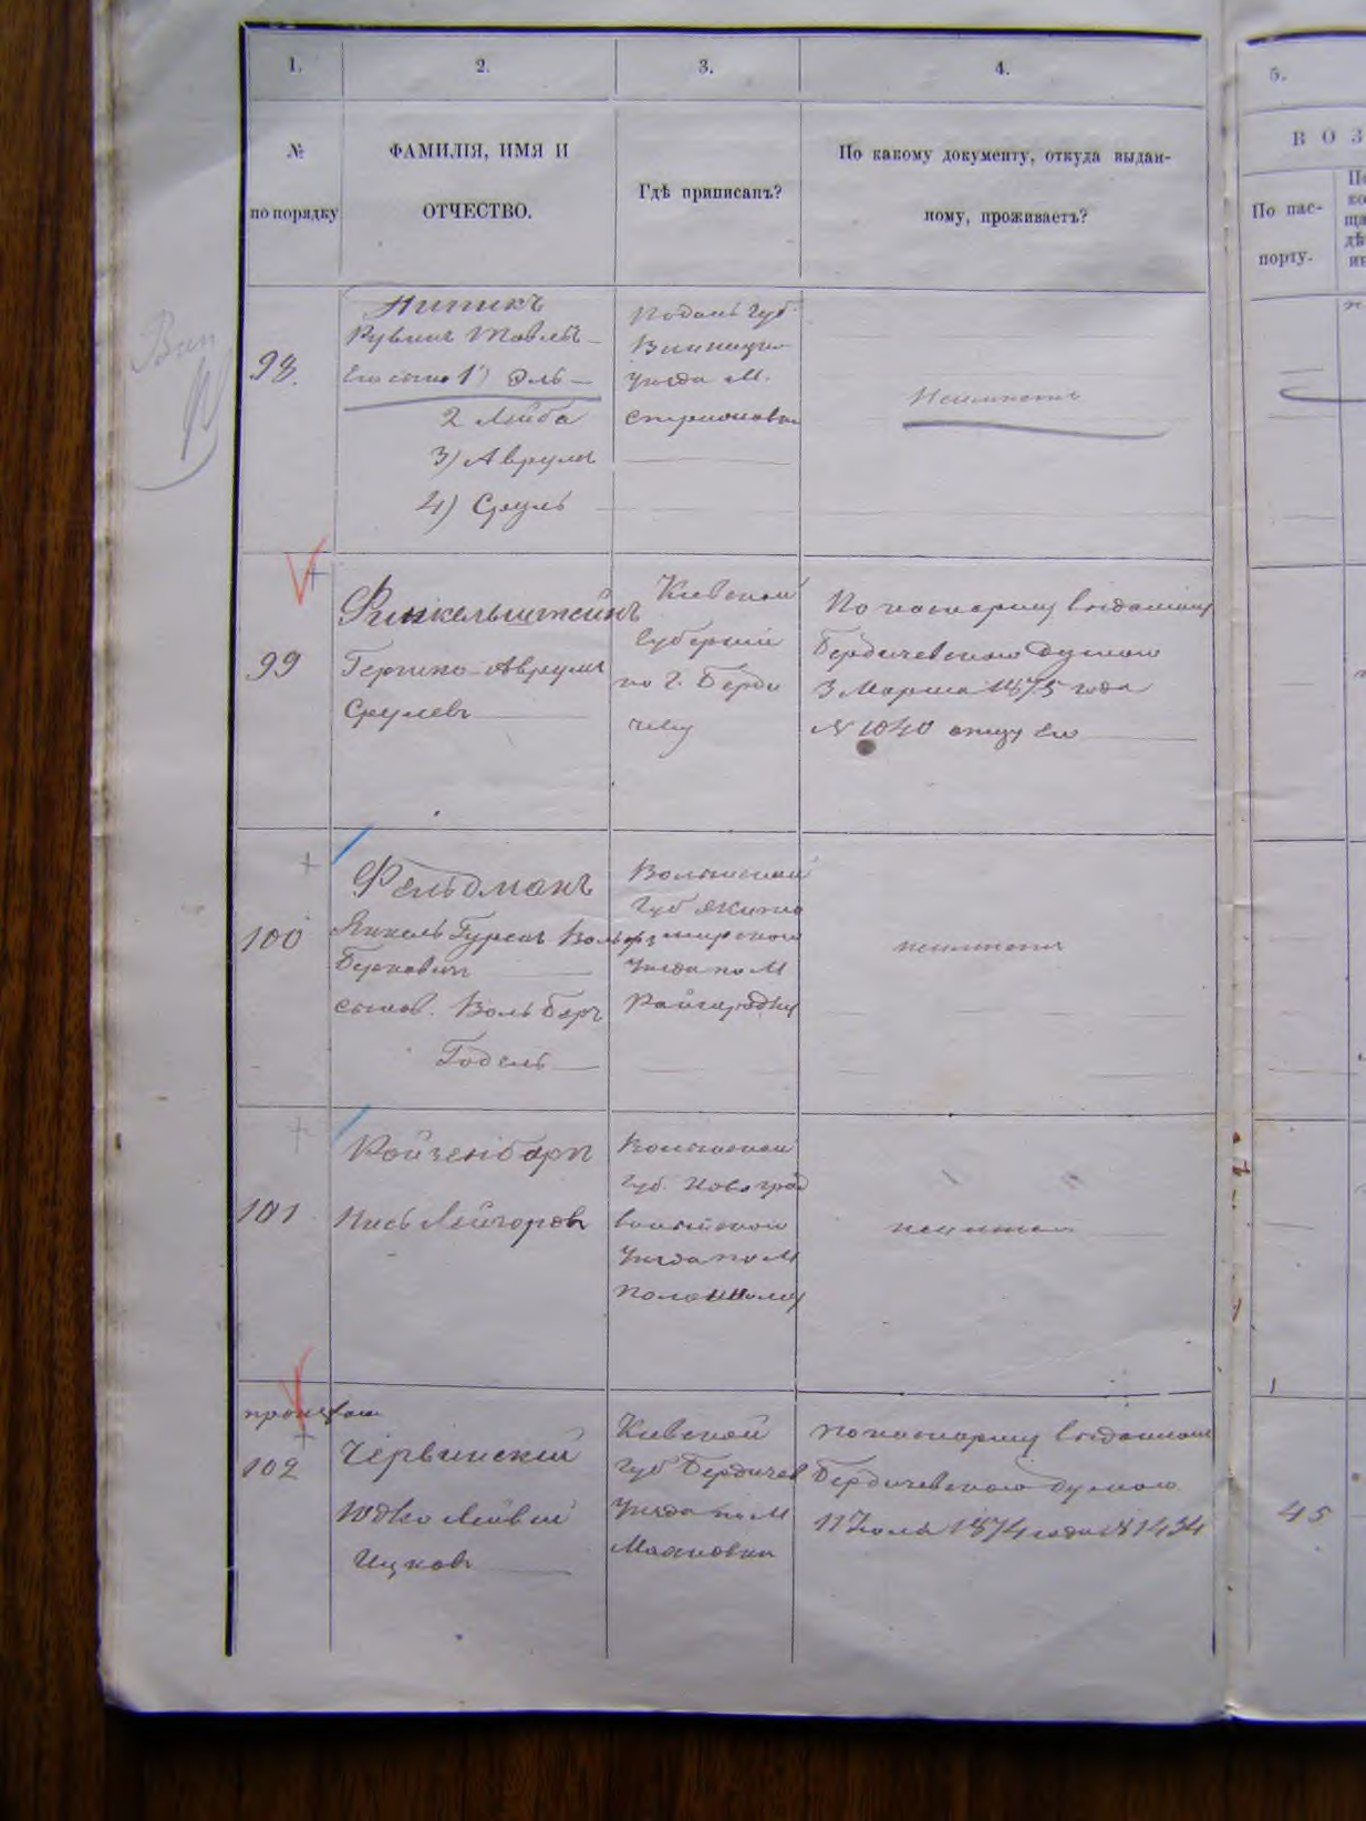 1.
2.
3.
4.
5.
№
по порядку
ФАМИЛІЯ, ИМЯ И
ОТЧЕСТВО.
Гдѣ приписанъ?
По какому документу, откуда выдан-
ному, проживаетъ?
В О З
По пас-
порту.
98.
Рувинъ
Его сынъ 1)
2 Лейба
3) Аврумъ
4) Сруль
Подол. Губ.
Винницко
Уѣзда М.
Неимѣетъ
99
Финкельштейнъ
Гершко-Аврумъ
Срулевъ
Кіевской
Губерніи
по г. Берди
чеву
По паспорту выданному
Бердичевскою Думою
3 Марта 1875 года
№ 1040 отцу его
100
Фельдманъ
Янкель
Берковичъ
сынов. Воль Беръ
Годель
Волынской
Губ Жито
мирского
Уѣзда по М
Райгородку
неимѣетъ
101
Ройзенбергъ
Волынской
Губ. Новоград
волынского
Уѣзда по М
Полонному
неимѣетъ
102
Червинскій
Юдко Лейвій
Ицковъ
Кіевской
Губ Бердичев
Уѣзда по М
Махновки
По паспорту выданному
Бердичевскою думою
11 Іюля 1874 года № 1434
45